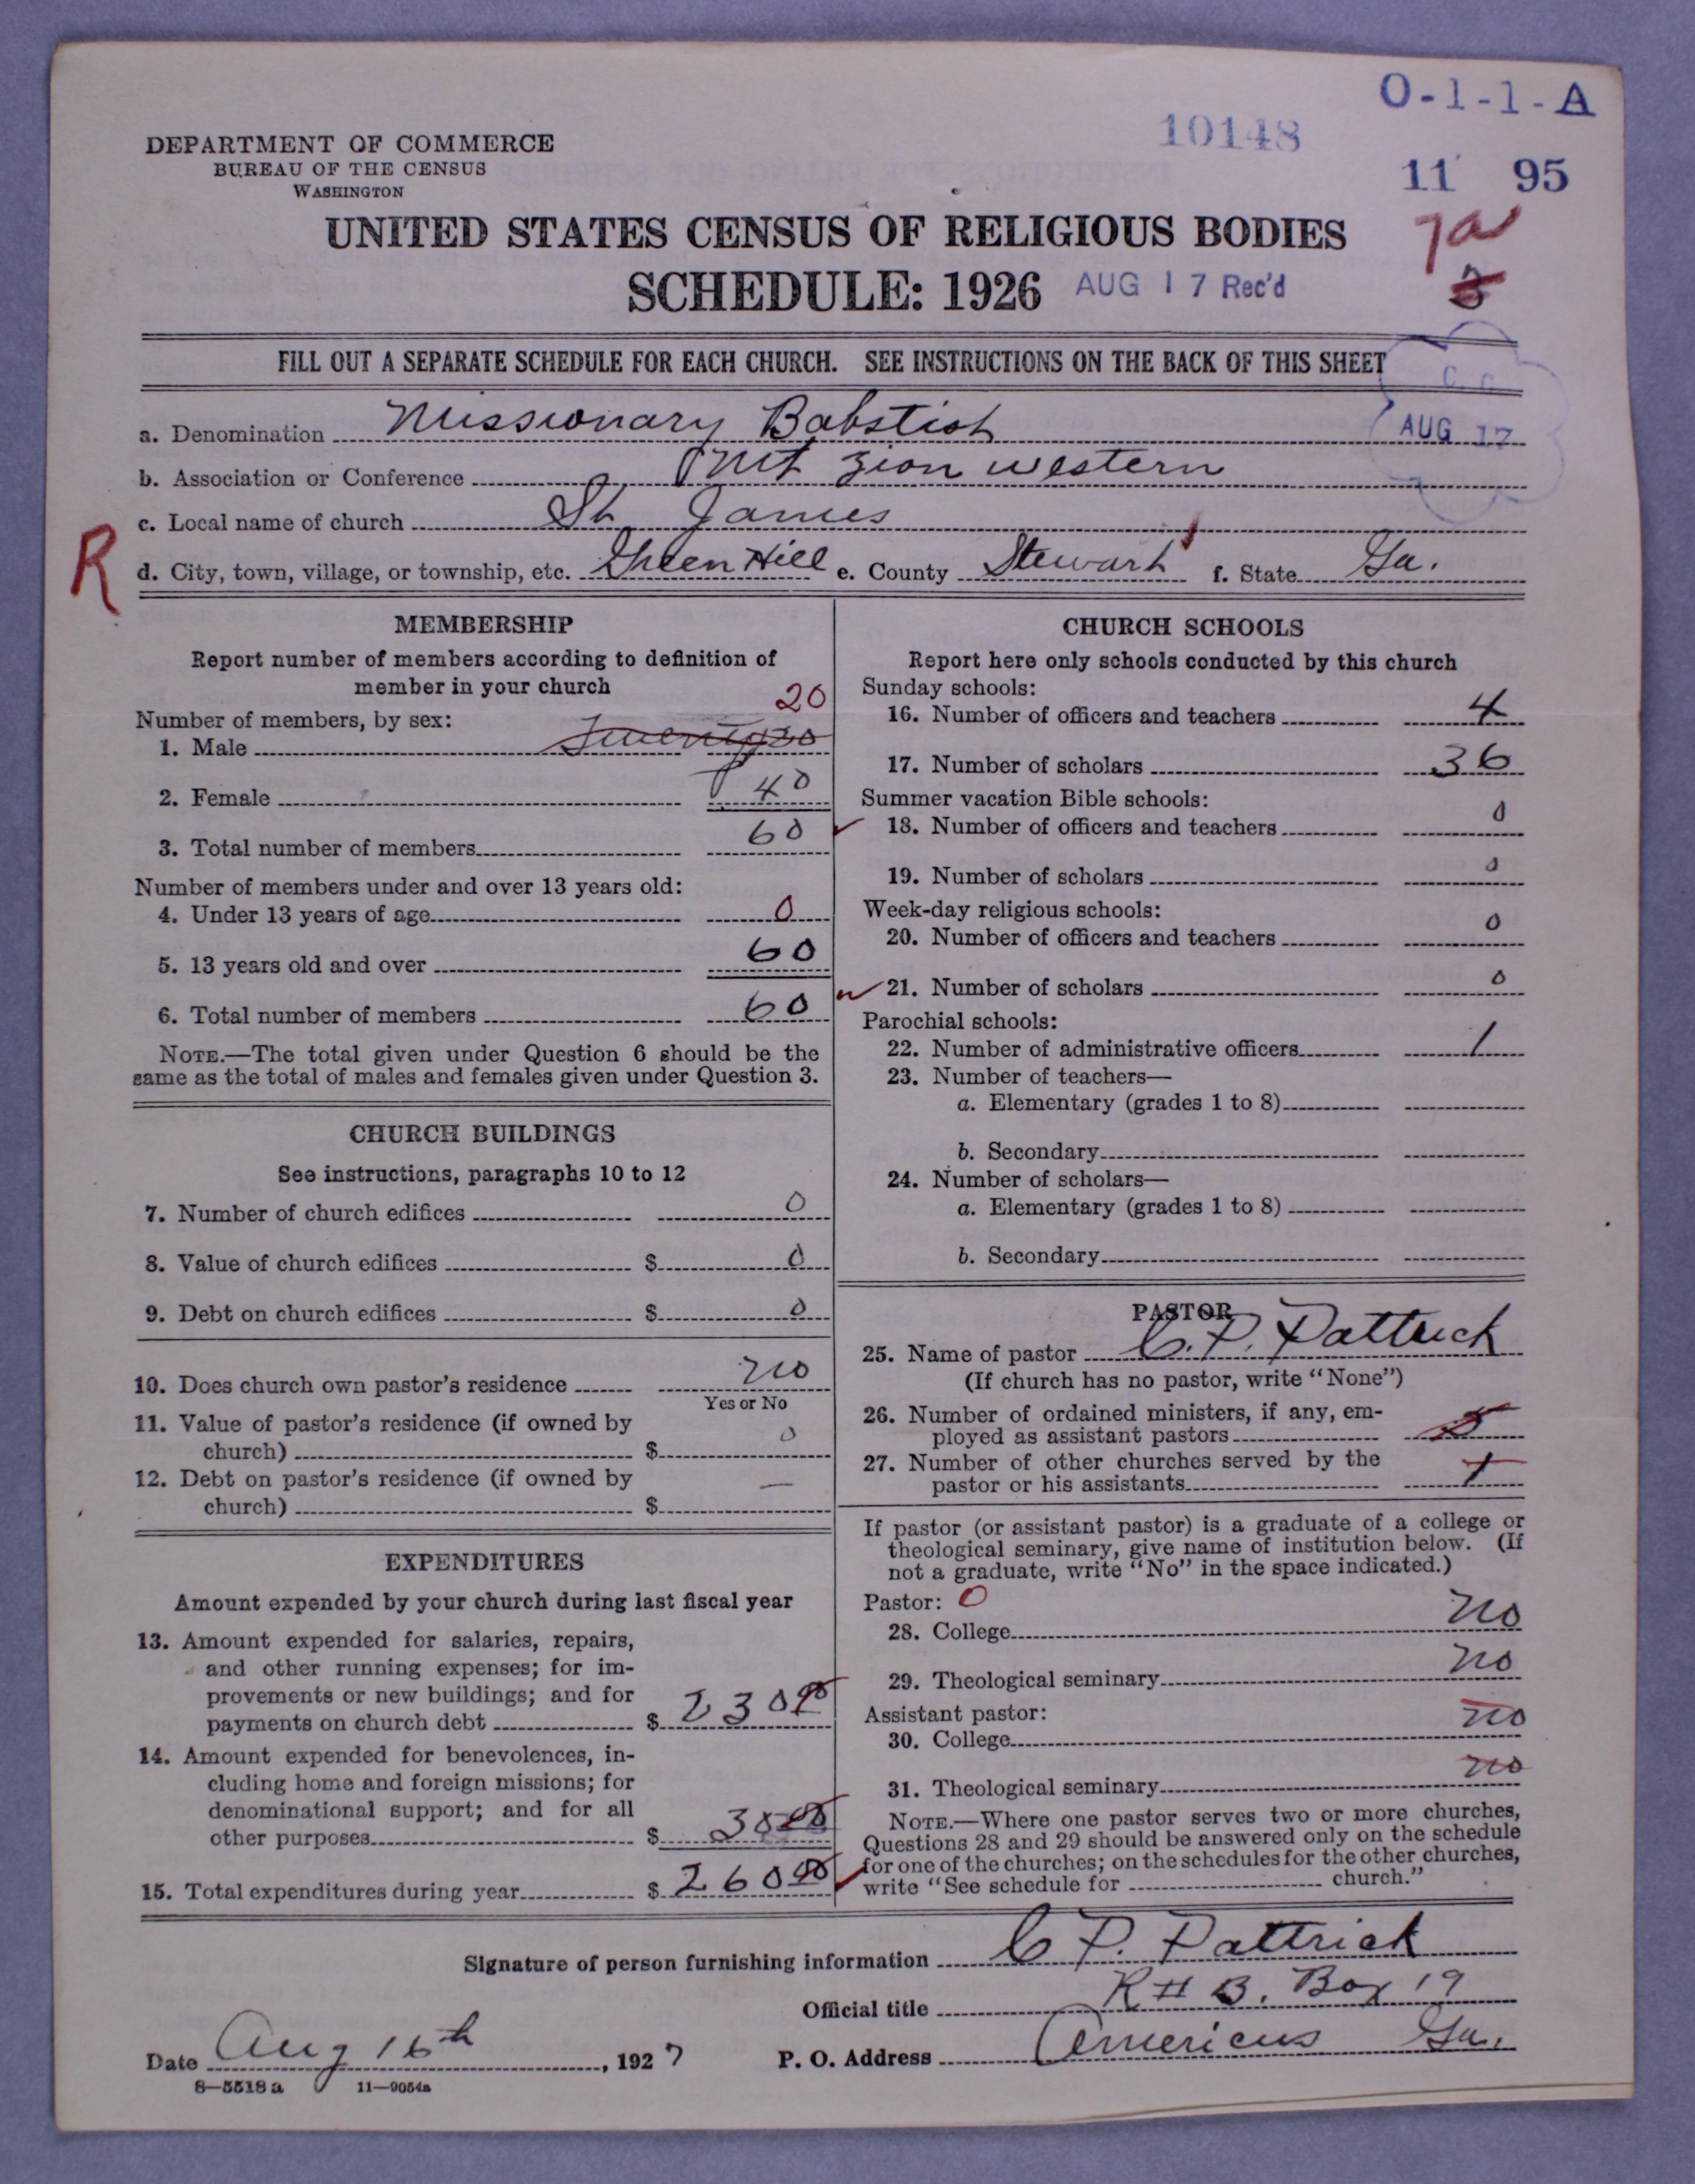 O-1-1-A
10148
DEPARTMENT OF COMMERCE
BUREAU OF THE CENSUS
WASHINGTON
11 95
7a
UNITED STATES CENSUS OF RELIGIOUS BODIES
SCHEDULE: 1926 AUG 17 Rec'd
3
FILL OUT A SEPARATE SCHEDULE FOR EACH CHURCH. SEE INSTRUCTIONS ON THE BACK OF THIS SHEET
C. C.
AUG 17
a. Denomination Missionary Babstist
b. Association or Conference Mt Zion western
c. Local name of church St James
R
d. City, town, village, or township, etc. Green Hill e. County Stewart f. State Ga.
MEMBERSHIP
Report number of members according to definition of
member in your church
20
Number of members, by sex:
1. Male Twenty 20
2. Female 40
3. Total number of members 60
Number of members under and over 13 years old:
4. Under 13 years of age 0
5. 13 years old and over 60
6. Total number of members 60
NOTE.—The total given under Question 6 should be the
same as the total of males and females given under Question 3.
CHURCH BUILDINGS
See instructions, paragraphs 10 to 12
7. Number of church edifices 0
8. Value of church edifices $ 0
9. Debt on church edifices $ 0
10. Does church own pastor's residence no
Yes or No
11. Value of pastor's residence (if owned by
church) $ 0
12. Debt on pastor's residence (if owned by
church) $ —
EXPENDITURES
Amount expended by your church during last fiscal year
13. Amount expended for salaries, repairs,
and other running expenses; for im-
provements or new buildings; and for
payments on church debt $ 230 00
14. Amount expended for benevolences, in-
cluding home and foreign missions; for
denominational support; and for all
other purposes $ 30 00
15. Total expenditures during year $ 260 00
CHURCH SCHOOLS
Report here only schools conducted by this church
Sunday schools:
16. Number of officers and teachers 4
17. Number of scholars 36
Summer vacation Bible schools:
18. Number of officers and teachers 0
19. Number of scholars 0
Week-day religious schools:
20. Number of officers and teachers 0
21. Number of scholars 0
Parochial schools:
22. Number of administrative officers 1
23. Number of teachers—
a. Elementary (grades 1 to 8)
b. Secondary
24. Number of scholars—
a. Elementary (grades 1 to 8)
b. Secondary
PASTOR
25. Name of pastor C. P. Pattrick
(If church has no pastor, write "None")
26. Number of ordained ministers, if any, em-
ployed as assistant pastors 5
27. Number of other churches served by the
pastor or his assistants 1
If pastor (or assistant pastor) is a graduate of a college or
theological seminary, give name of institution below. (If
not a graduate, write "No" in the space indicated.)
Pastor: 0
28. College no
29. Theological seminary no
Assistant pastor:
30. College no
31. Theological seminary no
NOTE.—Where one pastor serves two or more churches,
Questions 28 and 29 should be answered only on the schedule
for one of the churches; on the schedules for the other churches,
write "See schedule for church."
Signature of person furnishing information C P. Pattrick
Official title R # B. Box 19
Date Aug 16th, 1927 P. O. Address Americus Ga.
8—5518 a 11—9054a